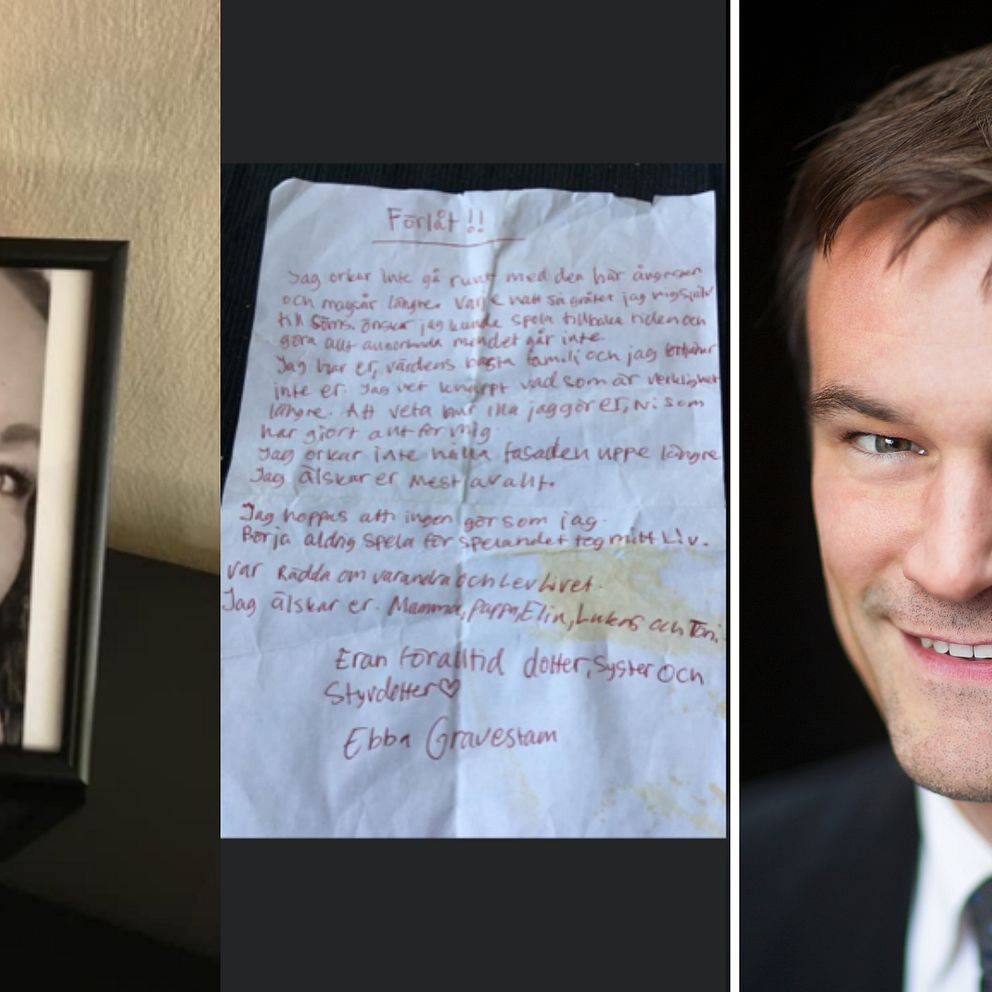 Förlåt!!
Jag orkar inte gå runt med den här ångesten
och magsår längre. Varje natt så gråtet jag mig själv
till söms. önskar jag kunde spela tillbaka tiden och
göra allt annorlunda mendet går inte.
Jag har er, värdens bästa familj och jag förtjänar
inte er. Jag vet knappt vad som är verklighet
längre. Att veta hur illa jag gör er, Ni som
har gjort allt för mig.
Jag orkar inte hålla fasaden uppe längre
Jag älskar er mest av allt.
Jag hoppas att ingen gör som jag.
Börja aldrig spela för spelandet tog mitt Liv.
var Rädda om varandra och Lev Livet.
Jag älskar er. Mamma, Pappa, Elin, Lukas och Toni.
Eran föralltid dotter, Syster och
Styvdotter♡
Ebba Gravestam